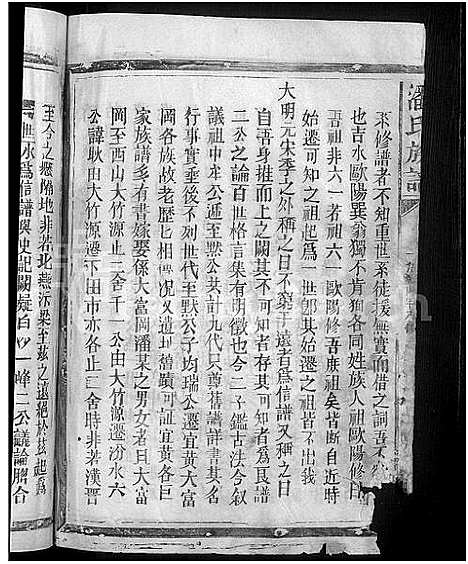 潘氏族譜
不修譜者不知重世系徒援無實而借之詞吾不
也吉水歐陽巽翁獨不肯狥各同姓族人祖歐陽修
吾祖非六一若祖六一歐陽修吾族祖矣皆斷自近時
始遷可知之祖起爲一世郎其始遷之祖不出我
大明元宋季之外稱之日不窮于遠者爲信譜又稱之
自吾身推而上之闕其不可知者存其可知者爲良譜
二公之論百世格言集有明徵也今二予鑑古法今叙
議祖中牟公遞至黙公共計九代只尊舊譜詳書其名
行事實乗後不列世代至默公子均瑞公遷宜黄大富
岡各族故老歷相傳况又遺坵舊蹟可証宜黄各巨
家族譜多有書嫁娶係大富岡潘某之男女者且大富
岡至西山大竹源止二舍千一公由大竹源遷汾水六
公諱耿由大竹源遷下田市亦各止二舍時非若漢晋
至今之懸隔地非若北燕沂梁至兹之遠絕於兹起爲
一世永爲信譜與史記闕疑百以一峰二公議論脗合